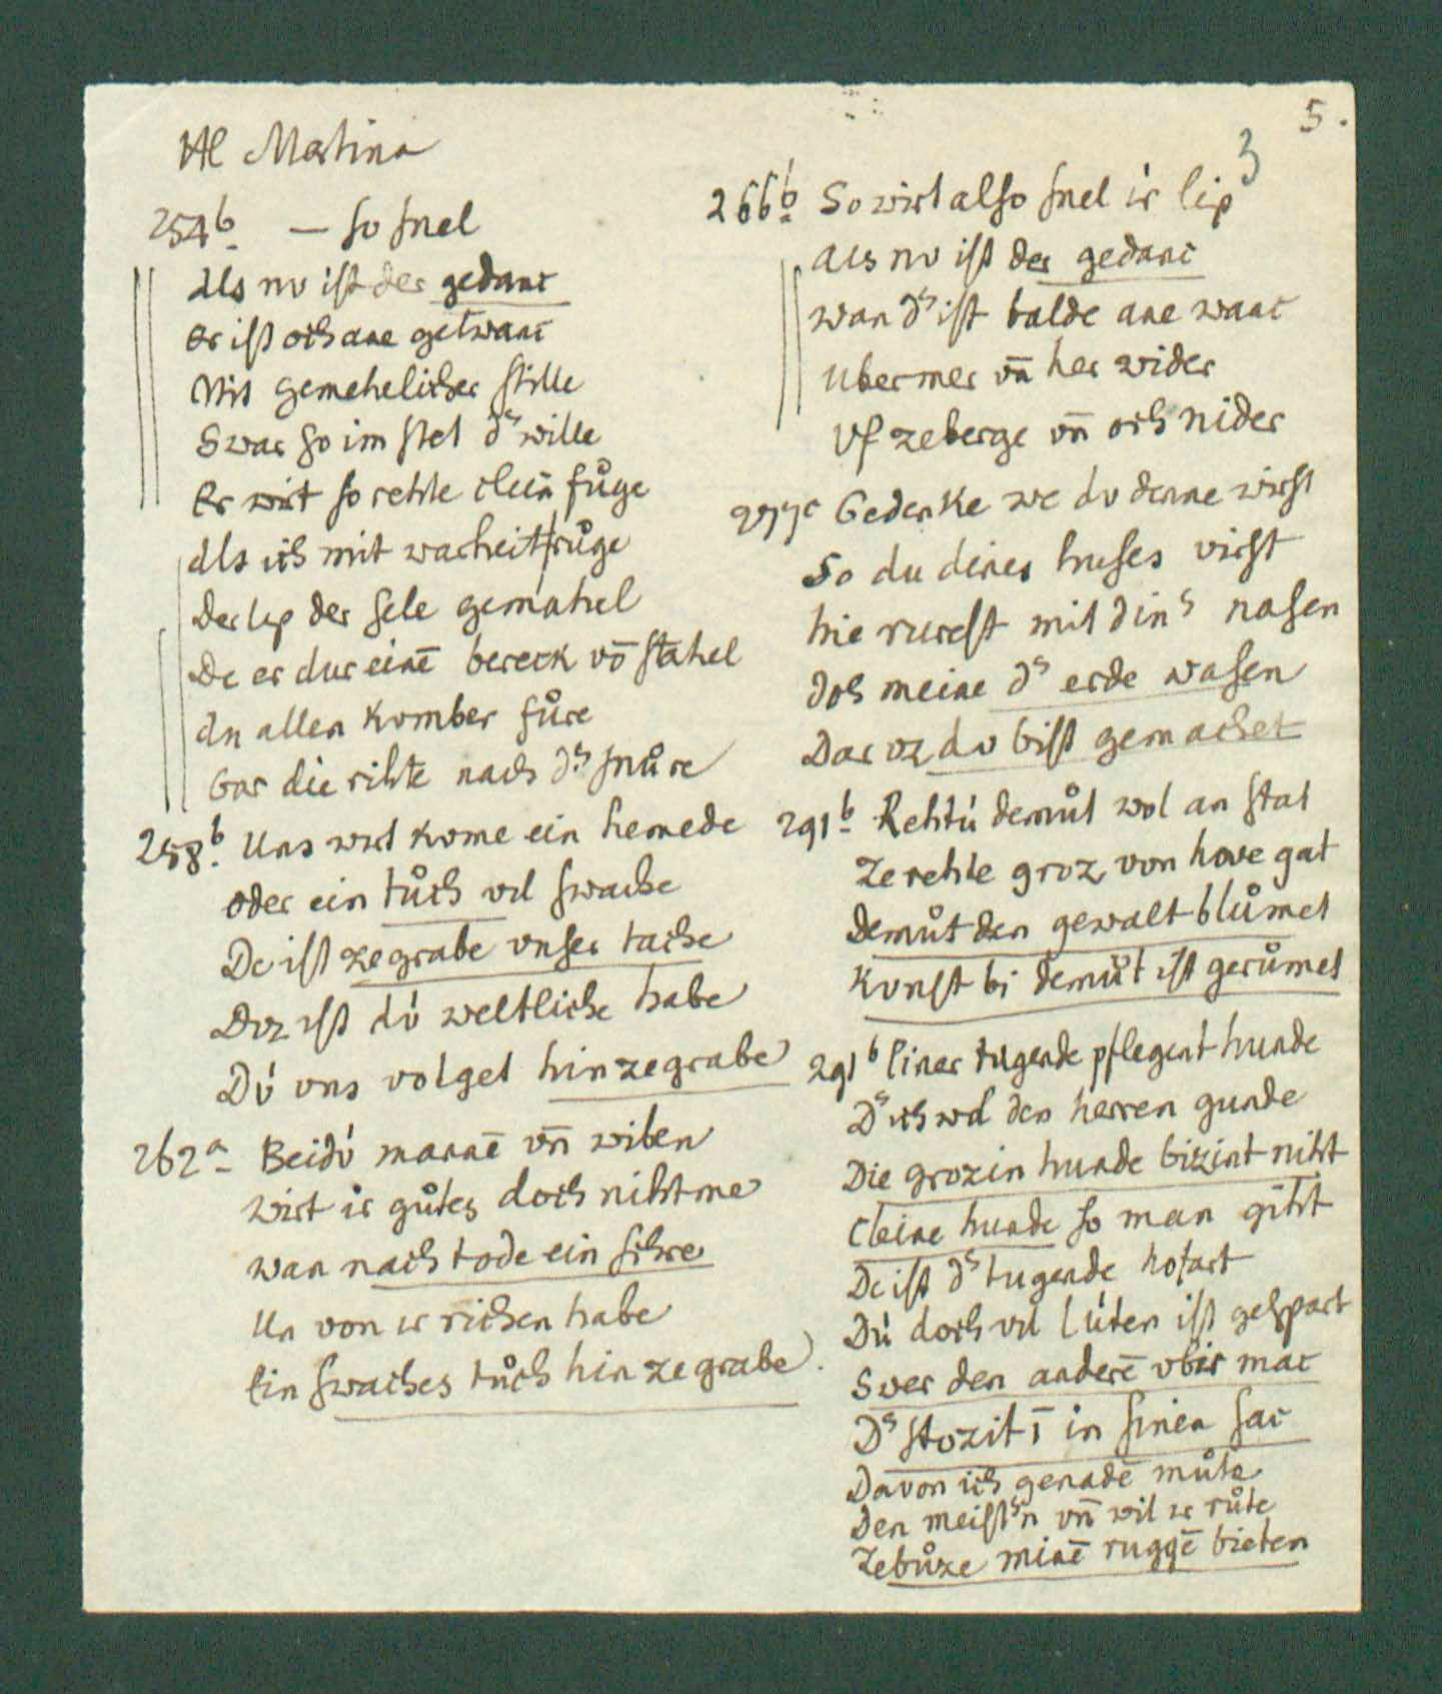 5.
3
HE Martina
254b. — so snel
Als nv ist der gedanc
Er ist och ane getwanc
Mit gemehelicher stille
Swar so im stet dˢ wille
Er wirt so rehte cleīā fůge
Als ich mit warheit růge
Der lip der sele gemahel
De er dur einē bereck vō stahel
An allen komber fůre
Gar die rihte nach dˢ snůre
258b. Uns wirt kome ein hemede
oder ein tůch vil swache
De ist ze grabe vnser tache
Diz ist dv́ weltliche habe
Dv́ vns volget hin ze grabe
262a Beidv́ mannē vn̄ wiben
wirt ir gůtes doch niht me
wan nach tode ein sihre
Un von ir richen habe
Ein swaches tůch hin ze grabe.
266b So wirt also snel ir lip
Als nv ist der gedanc
wan dˢ ist balde ane wanc
Uber mer vn̄ her wider
Vf ze berge vn̄ och nider
277c Gedenke we dv denne wirst
So du dines huses virst
hie rurest mit dinˢ nasen
Ich meine dˢ erde wasen
Dar vz dv bist gemachet
291b Rehtú demůt wol an stat
Ze rehte groz von hove gat
Demůt den gewalt blůmet
Kvnst bi demůt ist gerůmet
291b Einer tugende pflegent hunde
Dˢ ich wol den herren gunde
Die grozin hunde bizint niht
Cleine hunde so man giht
De ist dˢ tugende hofart
Dú doch vil lúten ist gespart
Swer den anderē vbir mac
Dˢ stozit ī in sinen sac
Davon ich genadē můte
Den meistˢn vn̄ wil ir růte
Ze bůze minē ruggē bieten